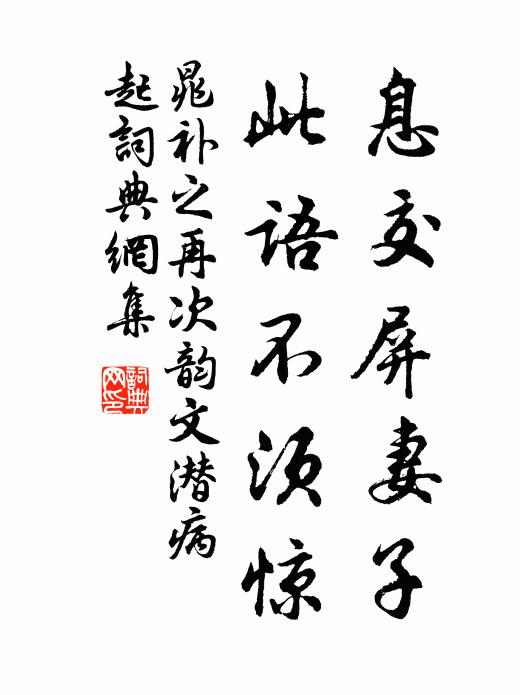 息交屏妻子
此语不须惊
晁补之再次韵文潜病
起詞典網集
詞典网印